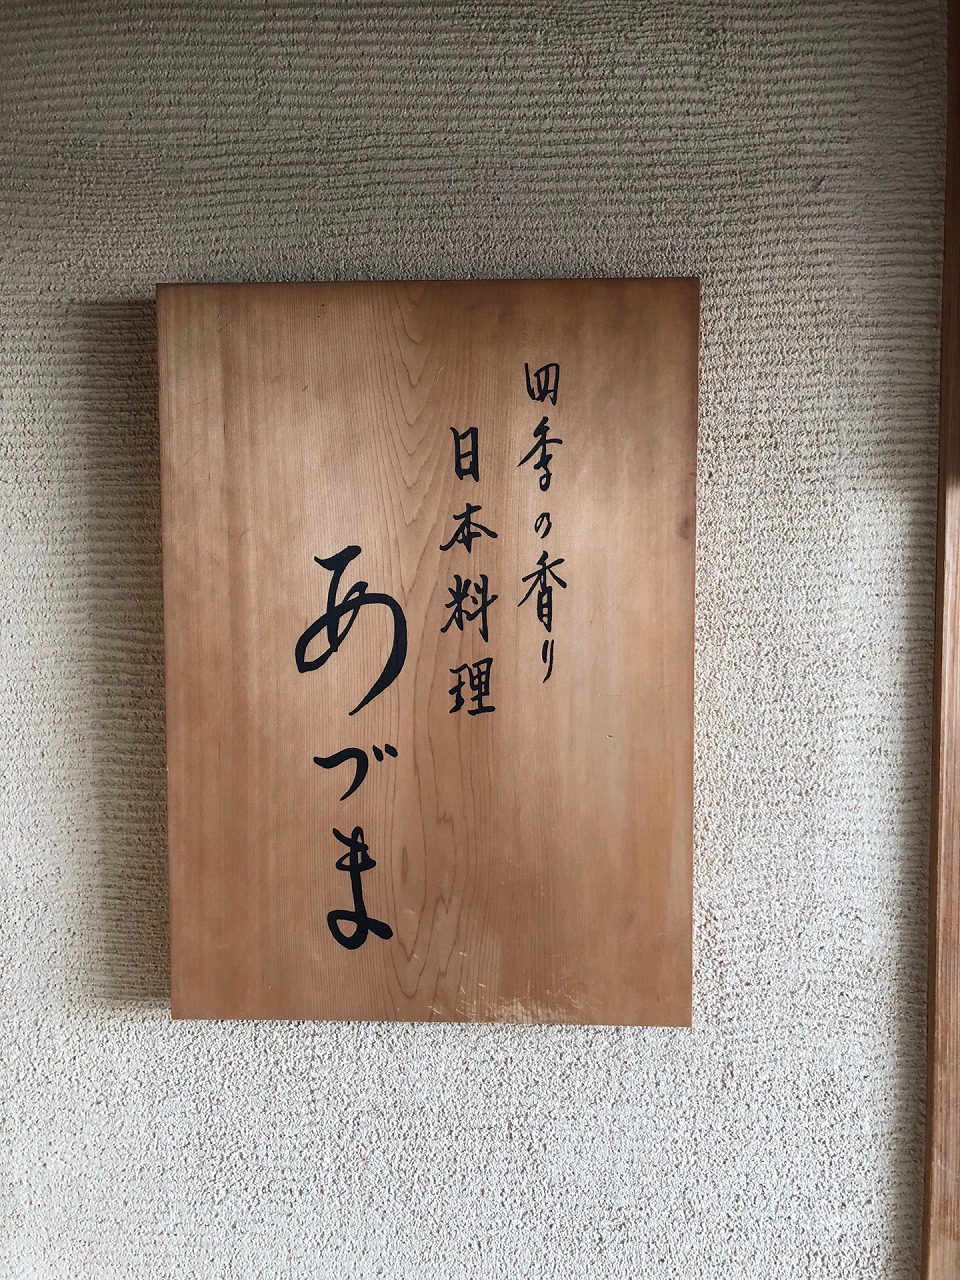 四季の香り
日本料理
あづま